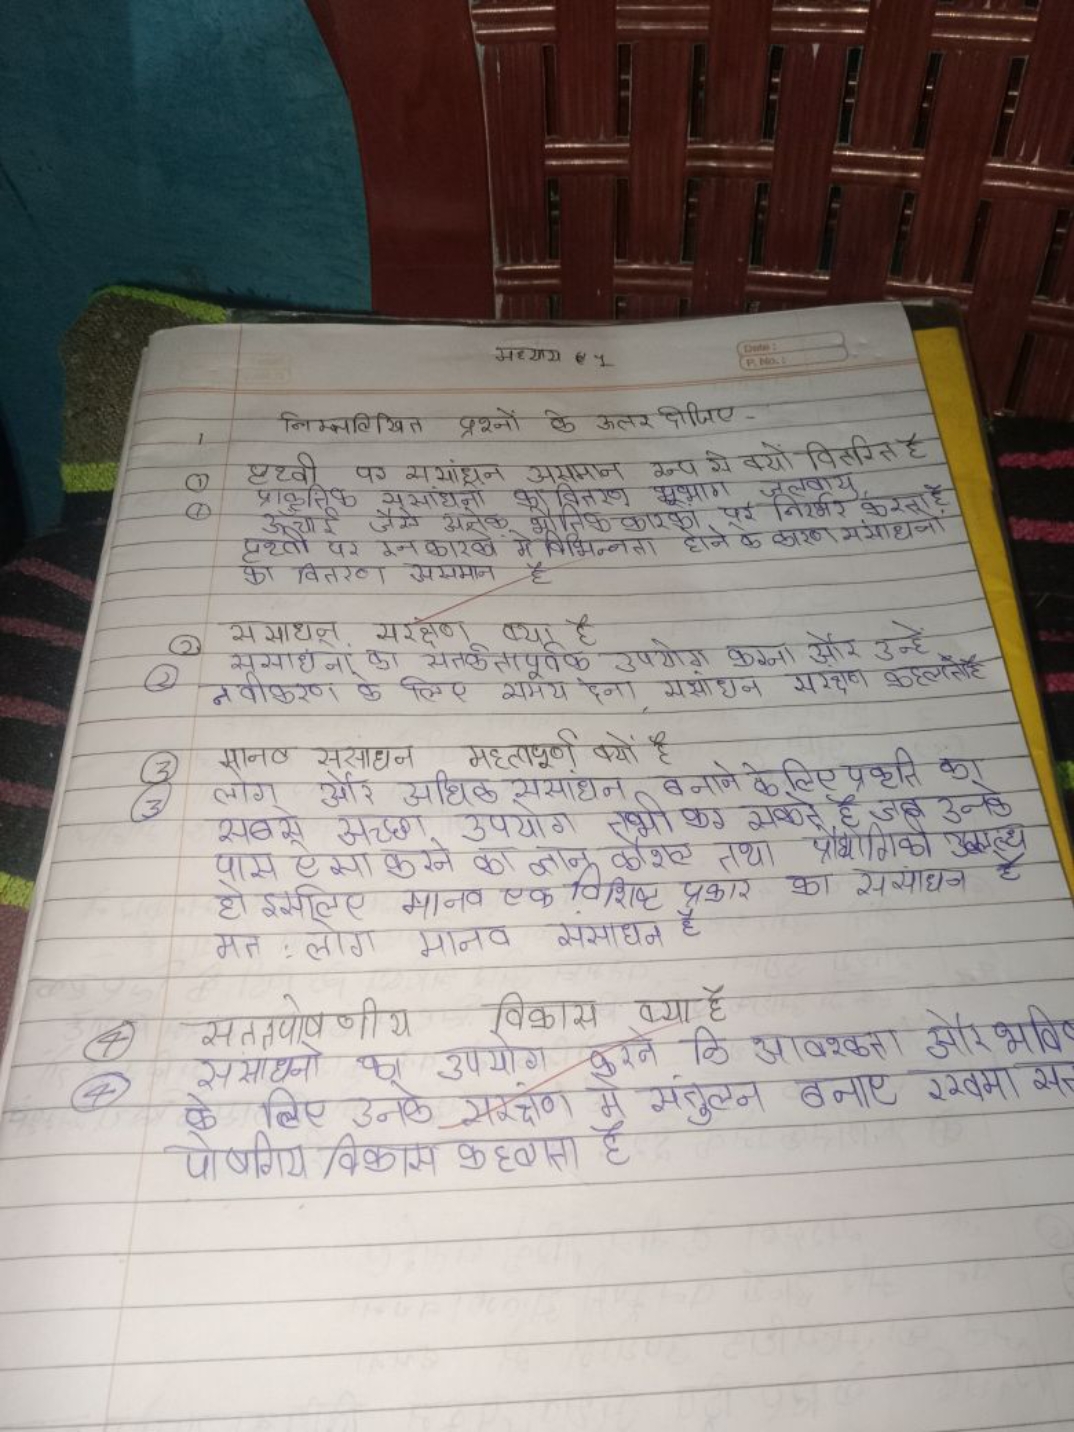 मध्याय 1
Date :
P. No. :
निम्नलिखित प्रश्नों के ऊतर दीजिए -
1
① पृथ्वी पर ससांधन असमान रूप से क्यों वितरित है
① प्राकृतिक ससांधनो का वितरण भूभाग जलवायु
ऊचाई जैसे अनेक भौतिक कारको पर निर्भर करता है
पृथ्वी पर इन कारको में विभिन्नता होने के कारण संसाधनो
का वितरण असमान है
② ससाधन सरंक्षण क्या है
ससाधनों का सतर्कतापूर्वक उपयोग करना और उन्हें
② नवीकरण के लिए समय देना, ससांधन सरंक्षण कहलाता है
③ मानव ससाधन महत्वपूर्ण क्यों है
③ लोग और अधिक ससांधन बनाने के लिए प्रकृति का
सबसे अच्छा उपयोग तभी कर सकते है जब उनके
पास एसा करने का ज्ञान कौशल तथा प्रौद्योगिकी उपलब्ध
हो इसलिए मानव एक विशिष्ट प्रकार का संसाधन है
मत : लोग मानव संसाधन है
④ सततपोषणीय विकास क्या है
④ संसाधनो का उपयोग करने कि आवश्कता और भविष
के लिए उनके सरंक्षण मे संतुलन बनाए रखमा सत
पोषणिय विकास कहलाता है